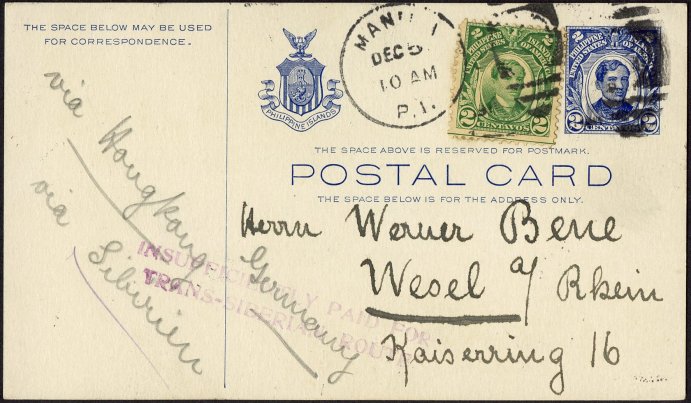 THE SPACE BELOW MAY BE USED
FOR CORRESPONDENCE.
PHILIPPINE ISLANDS
MANILA
DEC 5
10 AM
P.I.
2 2
PHILIPPINE ISLANDS
UNITED STATES OF AMERICA
2 CENTAVOS 2
2 2
PHILIPPINE ISLANDS
UNITED STATES OF AMERICA
2 CENTAVOS 2
THE SPACE ABOVE IS RESERVED FOR POSTMARK.
POSTAL CARD
THE SPACE BELOW IS FOR THE ADDRESS ONLY.
via Hongkong
via Siberien
Germany
INSUFFICIENTLY PAID FOR
TRANS-SIBERIAN ROUTE
Herrn Werner Bene
Wesel a/ Rhein
Kaiserring 16